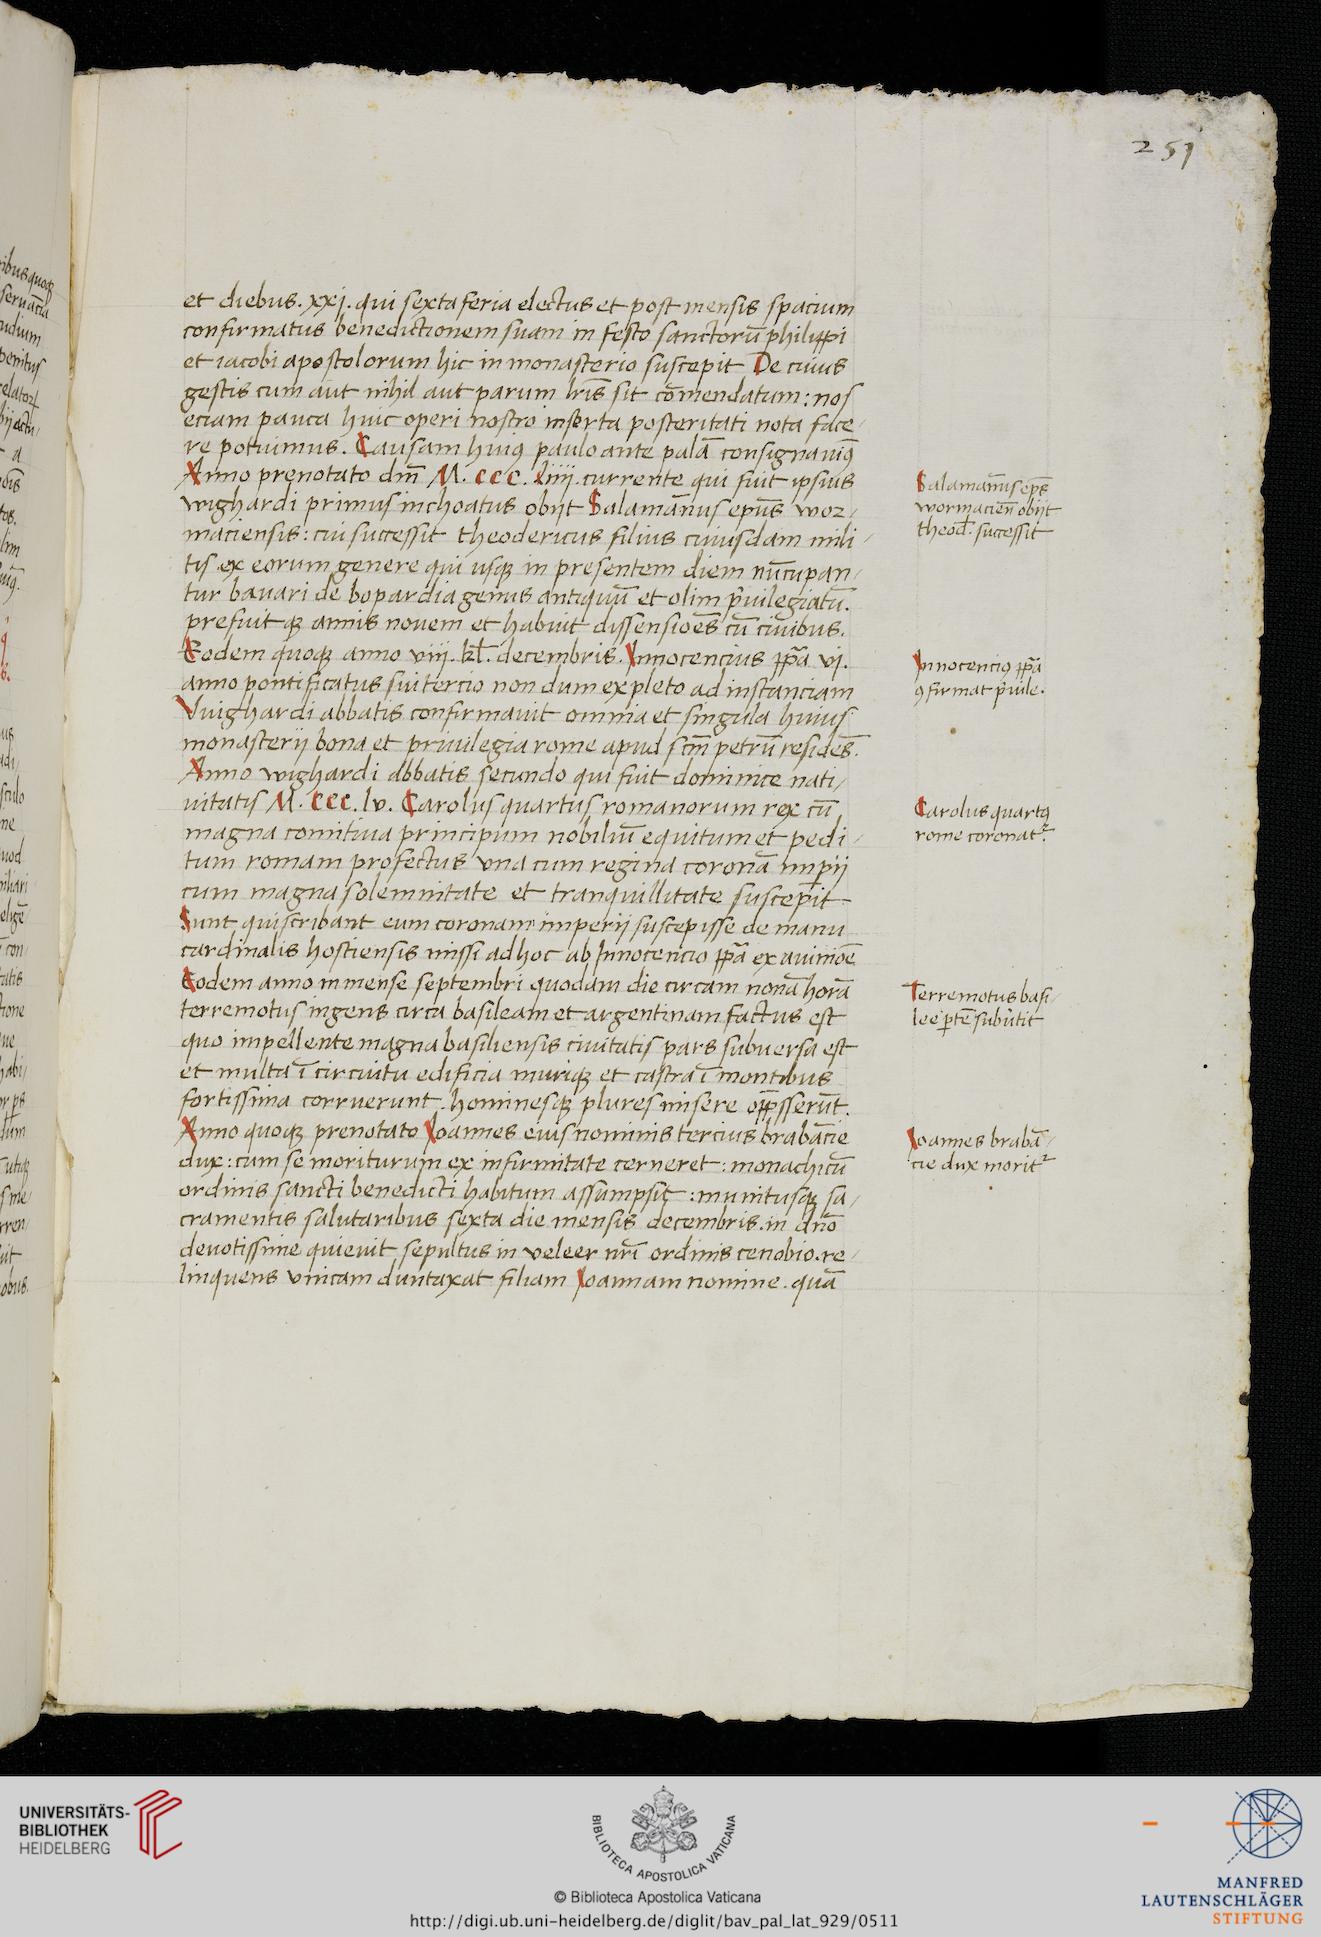 251
et diebus. xxj. qui sexta feria electus et post mensis spacium
confirmatus benedictionem suam in festo sanctorū philippi
et iacobi apostolorum hic in monasterio suscepit De cuius
gestis cum aut nihil aut parum lrīs sit cōmendatum: nos
eciam pauca huic operi nostro inserta posteritati nota face-
re potuimus. Causam huiꝰ paulo ante palā consignauimꝰ
Anno prenotato dm̄ M. ccc. liiij. currente qui fuit ipsius
wighardi primus inchoatus obijt Salamānus ep̄us wor-
maciensis: cui successit theodericus filius cuiusdam mili-
tis ex eorum genere qui usqꝫ in presentem diem nūcupan-
tur bauari de bopardia genus antiquū et olim p̄uilegiatū.
prefuitqꝫ annis nouem et habuit dissensiōes cū ciuibus.
Eodem quoqꝫ anno viij. kl̄. decembris. Innocencius pp̄a vj.
anno pontificatus sui tercio non dum expleto ad instanciam
Vuighardi abbatis confirmauit omnia et singula huius
monasterij bona et priuilegia rome apud scm̄ petrū residēs.
Anno wighardi abbatis secundo qui fuit dominice nati-
uitatis M. ccc. lv. Carolus quartus romanorum rex cū
magna comitiua principum nobiliū equitum et pedi-
tum romam profectus una cum regina coronā imp̄ij
cum magna solemnitate et tranquillitate suscepit
Sunt qui scribant eum coronam imperij suscepisse de manu
cardinalis hostiensis missi ad hoc ab Innocencio pp̄a ex auiniōe
Eodem anno in mense septembri quodam die circam nonā horā
terremotus ingens circa basileam et argentinam factus est
quo impellente magna basiliensis ciuitatis pars subuersa est
et multa ī circuitu edificia muriqꝫ et castra ī montibus
fortissima corruerunt. hominesqꝫ plures misere opp̄sserūt.
Anno quoqꝫ prenotato Ioannes eius nominis tercius brabācie
dux: cum se moriturum ex infirmitate cerneret: monachicū
ordinis sancti benedicti habitum assumpsit: munitusqꝫ sa-
cramentis salutaribus sexta die mensis decembris. in dnō
deuotissime quieuit sepultus in veleer nr̄i ordinis cenobio. re-
linquens unicam duntaxat filiam Ioannam nomine. quā
Salamānus ep̄s
wormacien̄ obijt
theod̄. successit
Innocenciꝰ pp̄a
ꝯfirmat p̄uile.
Carolus quartꝰ
rome coronat᷑
Terremotus basi-
lee p̄tē subūtit
Ioannes brabā-
cie dux morit᷑
UNIVERSITÄTS-
BIBLIOTHEK
HEIDELBERG
BIBLIOTECA APOSTOLICA VATICANA
© Biblioteca Apostolica Vaticana
http://digi.ub.uni-heidelberg.de/diglit/bav_pal_lat_929/0511
MANFRED
LAUTENSCHLÄGER
STIFTUNG